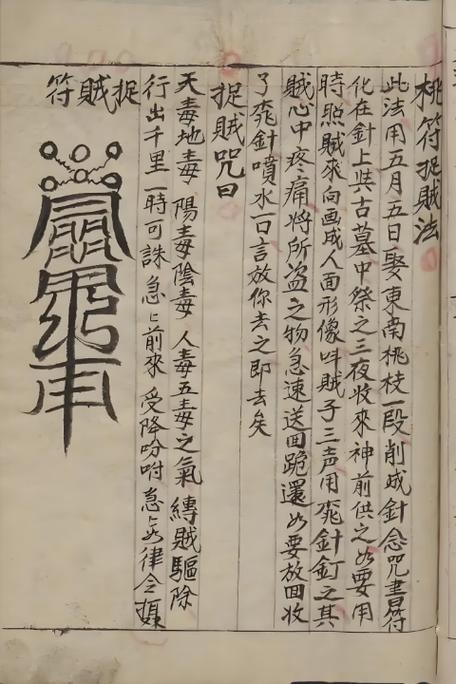 桃符捉賊法
此法用五月五日娶東南桃枝一段削成針念咒書符
化在針上裝古墓中祭之三夜收來神前供之如要用
時照賊來向画成人面形像呌賊子三声用桃針釘之其
賊心中疼痛將所盗之物急速送回跪還如要放回收
了桃針噴水一口言放你去之即去矣
捉賊咒曰
天毒地毒陽毒陰毒人毒五毒之氣縛賊驅除
行出千里一時可誅急々前來受降吩咐急々如律令攝
捉賊符